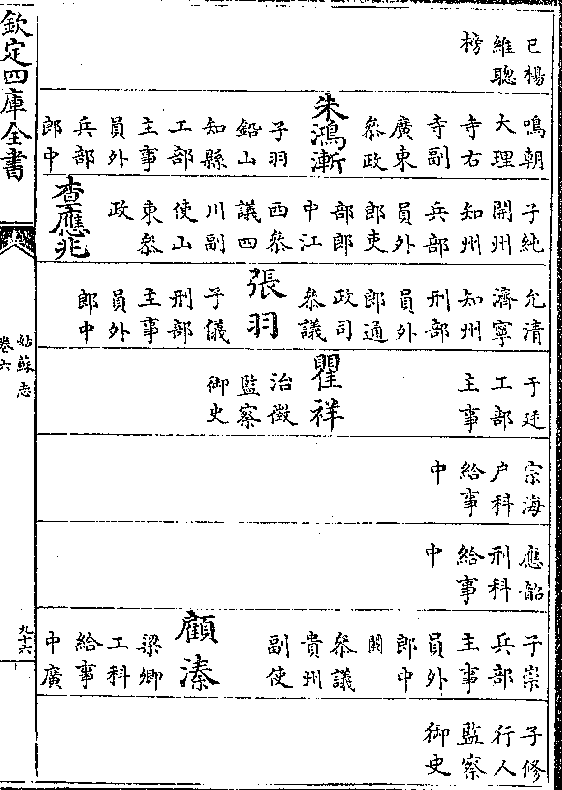 已楊
維聰
榜
鳴朝
大理
寺右
寺副
廣東
叅政
朱鴻漸
子羽
鉛山
知縣
工部
主事
員外
兵部
郎中
子純
開州
知州
兵部
員外
郎吏
部郎
中江
西叅
議四
川副
使山
東叅
政
查應兆
允清
濟寧
知州
刑部
員外
郎通
政司
叅議
張羽
子儀
刑部
主事
員外
郎中
于廷
工部
主事
瞿祥
治徵
監察
御史
宗海
户科
給事
中
應韶
刑科
給事
中
子崇
兵部
主事
員外
郎中
闕
叅議
貴州
副使
顧溱
梁卿
工科
給事
中廣
子修
行人
監察
御史
欽定四庫全書
姑蘇志
卷六
九十六